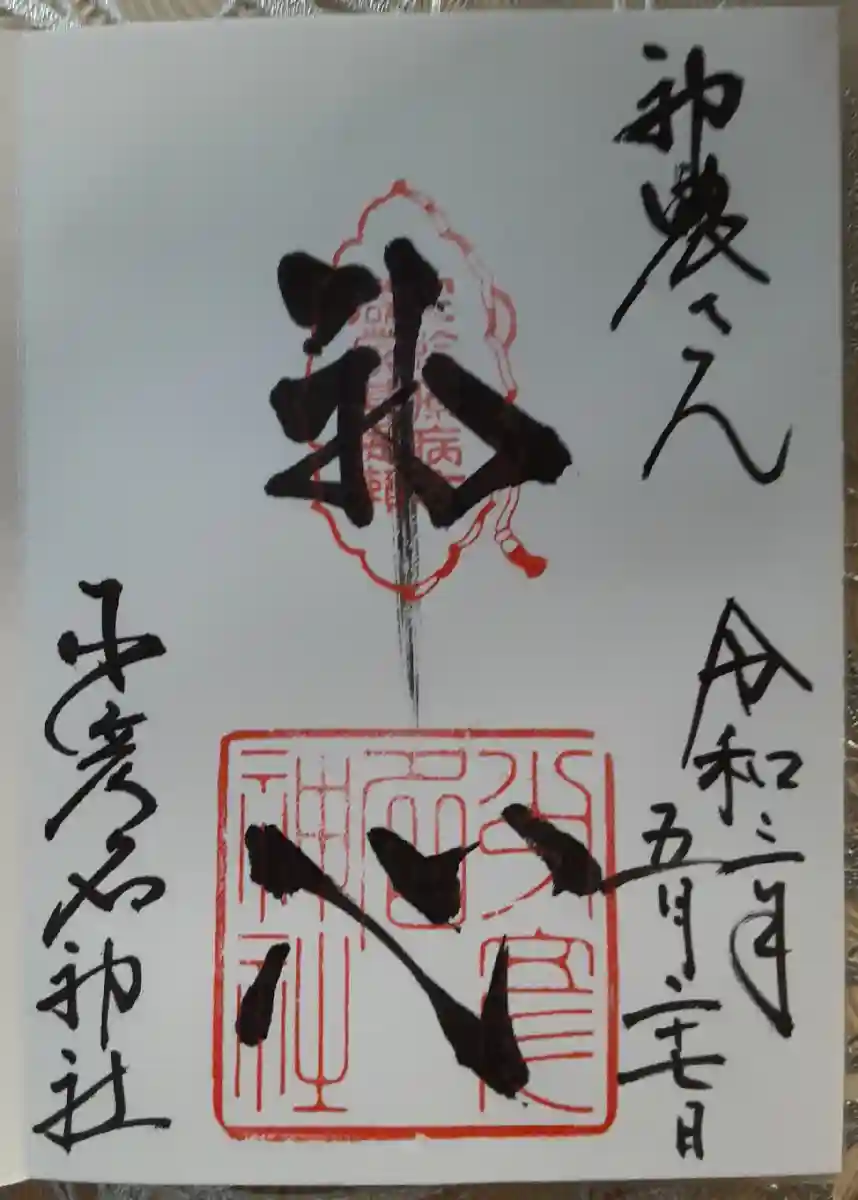 神農さん
令和三年
五月二十七日
神心
少彦名神社
少彦名神社